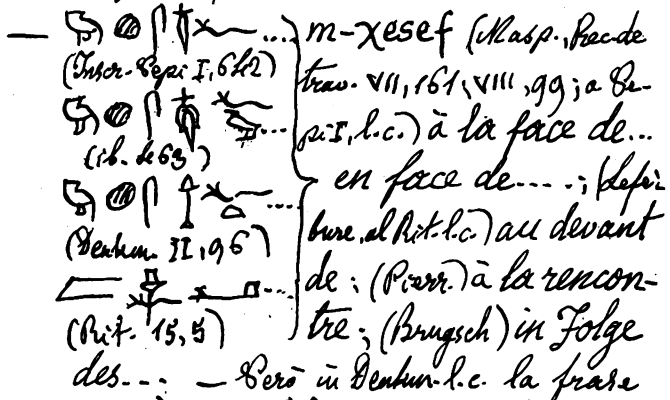 — ....
(Inscr. Pepi I,
....
(ib. l. 63)
....
(Denkm. II, 96)
....
(Rit. 15, 5)
m-χesef (Masp., Rec. de
trav. VII, 161, VIII, 99; a Pe-
pi I, l.c.) à la face de...
en face de....; (Lefé-
bure, al Rit. l.c.) au devant
de; (Pierr.) à la rencon-
tre; (Brugsch) in Folge
des...; — Però in Denkm. l.c. la frase